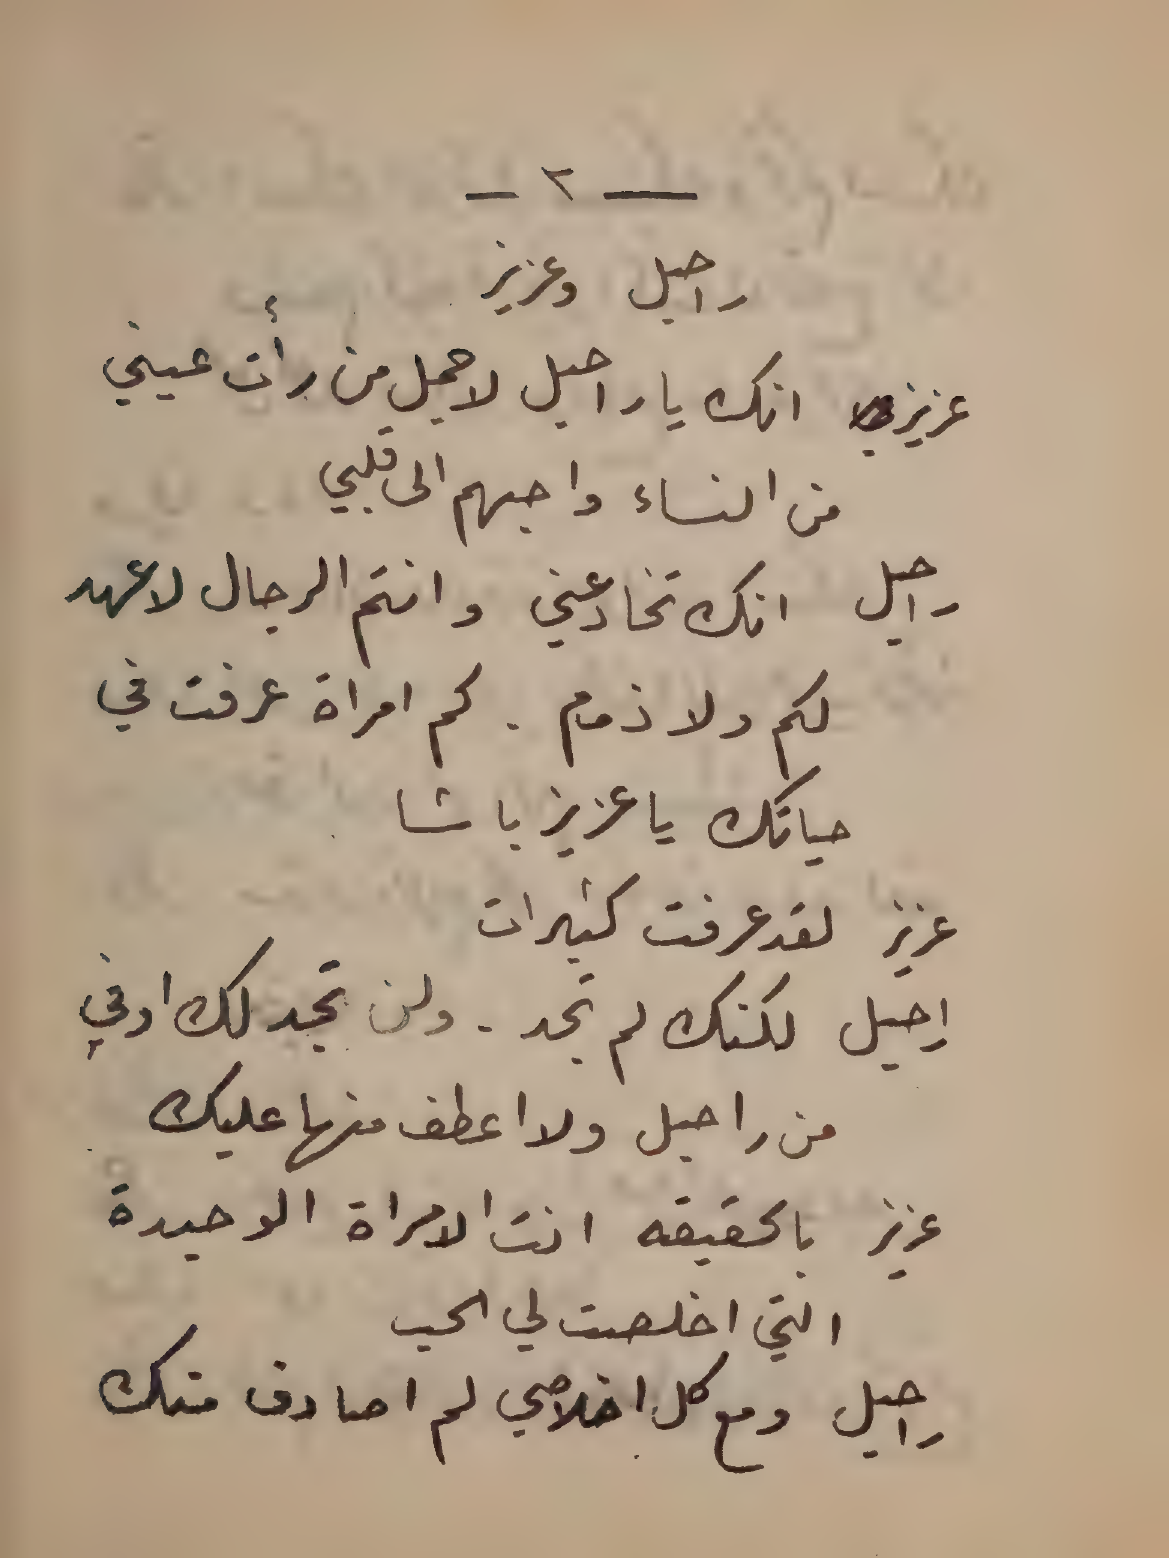 — ٢ —
راحيل وعزيز
عزيز انك يا راحيل لاجمل من رأت عيني
من النساء واحبهم الى قلبي
راحيل انك تخادعني وانتم الرجال لا عهد
لكم ولا ذمام . كم امراة عرفت في
حياتك يا عزيز باشا
عزيز لقد عرفت كثيرات
راحيل لكنك لم تجد . ولن تجد لك اوفى
من راحيل ولا اعطف منها عليك
عزيز بالحقيقه انت الامراة الوحيدة
التي اخلصت لي الحب
راحيل ومع كل اخلاصي لم اصادف منك